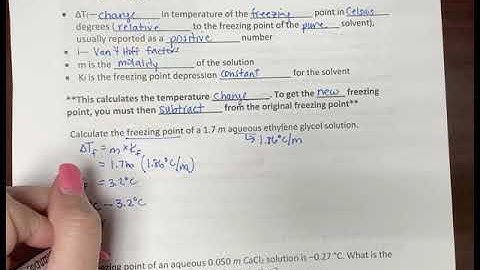 • ΔTf— change in temperature of the freezing point in Celsius
degrees (relative to the freezing point of the pure solvent),
usually reported as a positive number
• i— Van't Hoff factors
• m is the molality of the solution
• Kf is the freezing point depression constant for the solvent
**This calculates the temperature change. To get the new freezing
point, you must then subtract from the original freezing point**
Calculate the freezing point of a 1.7 m aqueous ethylene glycol solution.
ΔTf = m × Kf ↳ 1.86°C/m
= 1.7m (1.86°C/m)
= 3.2°C
°C − 3.2°C
point of an aqueous 0.050 m CaCl₂ solution is −0.27 °C. What is the